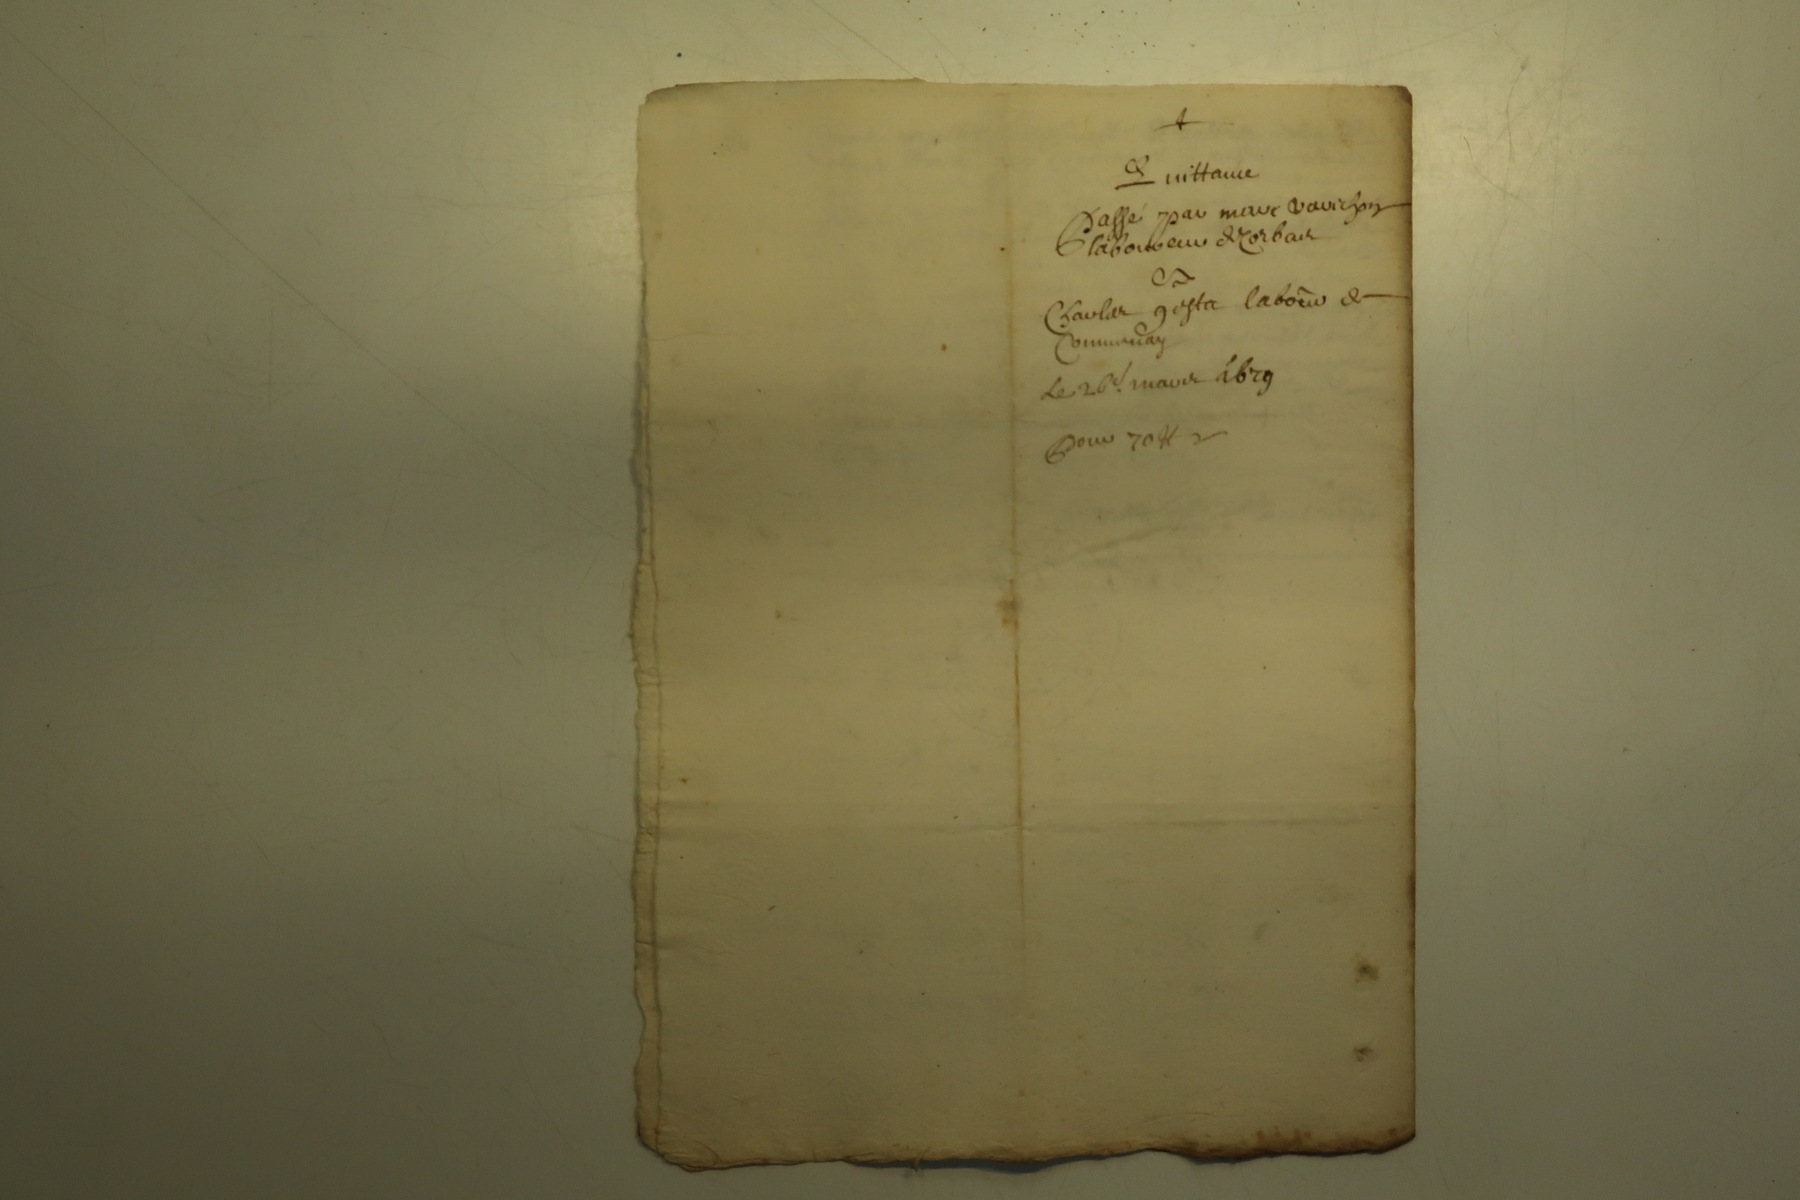 +
Quittance
Passé par marc varichon
laboureur de Corbas
A
Charles 9esta laboũr de
Communay
Le 26e mars 1679
Pour 70 ₶